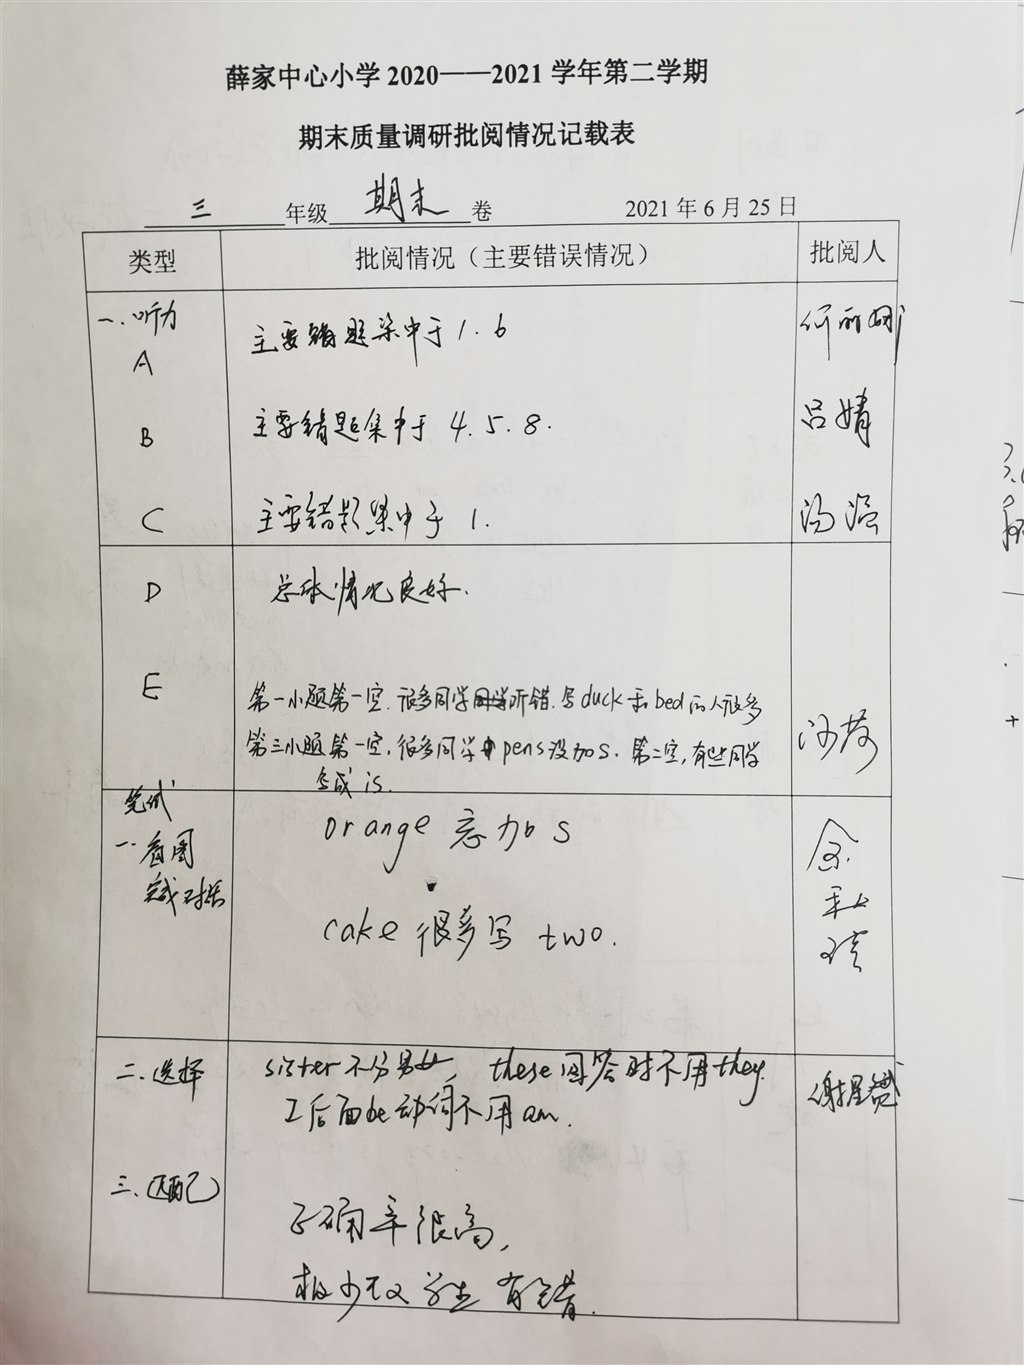 薛家中心小学 2020——2021 学年第二学期
期末质量调研批阅情况记载表
三 年级 期末 卷 2021 年 6 月 25 日
类型 批阅情况（主要错误情况） 批阅人
一.听力
A 主要错题集中于 1. 6
B 主要错题集中于 4. 5. 8. 吕婧
C 主要错题集中于 1. 汤溢
D 总体情况良好.
E 第一小题第一空.很多同学听错.写duck和bed的人很多
第三小题第一空,很多同学pens没加s.第二空,有些同学
写成 is.
笔试
一.看图
完成对话
orange 忘加 s
cake 很多写 two.
二.选择 sister不分男女, these回答时不用they.
I后面be动词不用am.
三.匹配
正确率很高,
极少数学生有错.